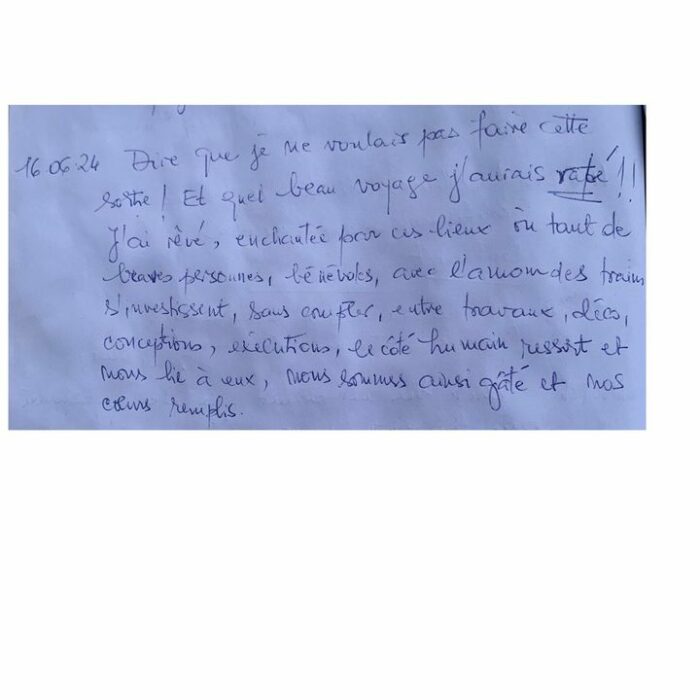 16.06.24 Dire que je ne voulais pas faire cette
sortie ! Et quel beau voyage j'aurais raté !!
J'ai rêvé, enchantée par ces lieux où tant de
braves personnes, bénévoles, avec l'amour des trains
s'investissent, sans compter, entre travaux, déco,
conceptions, exécutions, le côté humain ressort et
nous lie à eux, nous sommes ainsi gâté et nos
cœurs remplis.